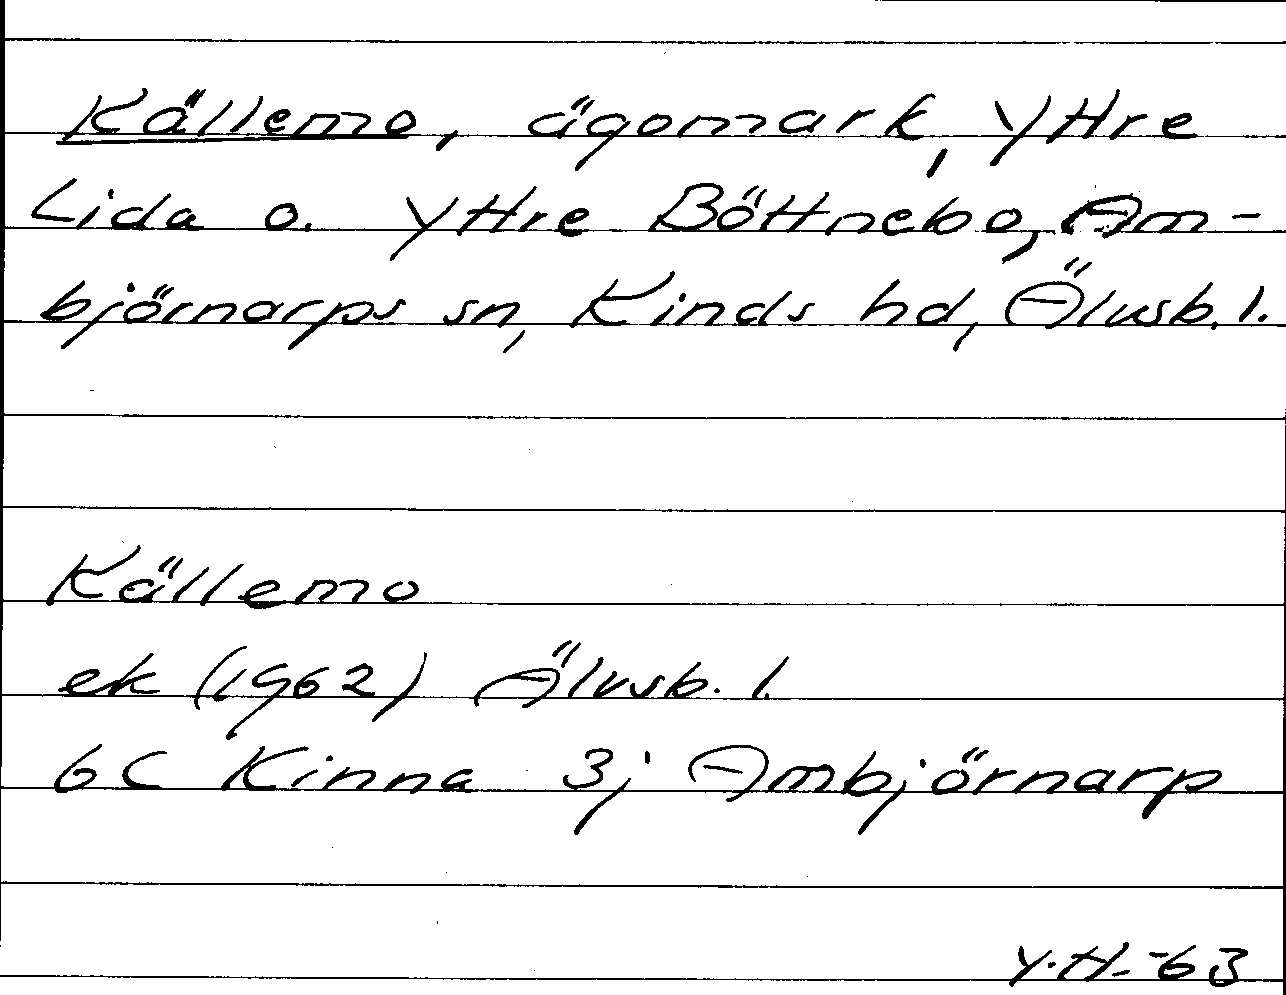 Källemo, ägomark, Yttre
Lida o. Yttre Böttnebo, Am-
björnarps sn, Kinds hd, Älvsb. l.
Källemo
ek (1962) Älvsb. l.
6C Kinna 3j Ambjörnarp
Y.H. -63